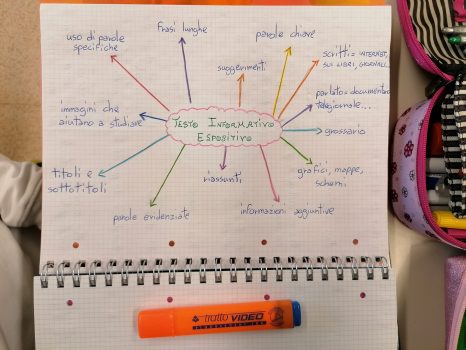 frasi lunghe
uso di parole
specifiche
parole chiave
scritti = INTERNET,
SUI LIBRI, GIORNALI...
suggerimenti
parlato = documentari
telegiornale...
immagini che
aiutano a studiare
TESTO INFORMATIVO
ESPOSITIVO
glossario
titoli e
sottotitoli
riassunti
grafici, mappe,
schemi
parole evidenziate
informazioni aggiuntive
TRATTO VIDEO